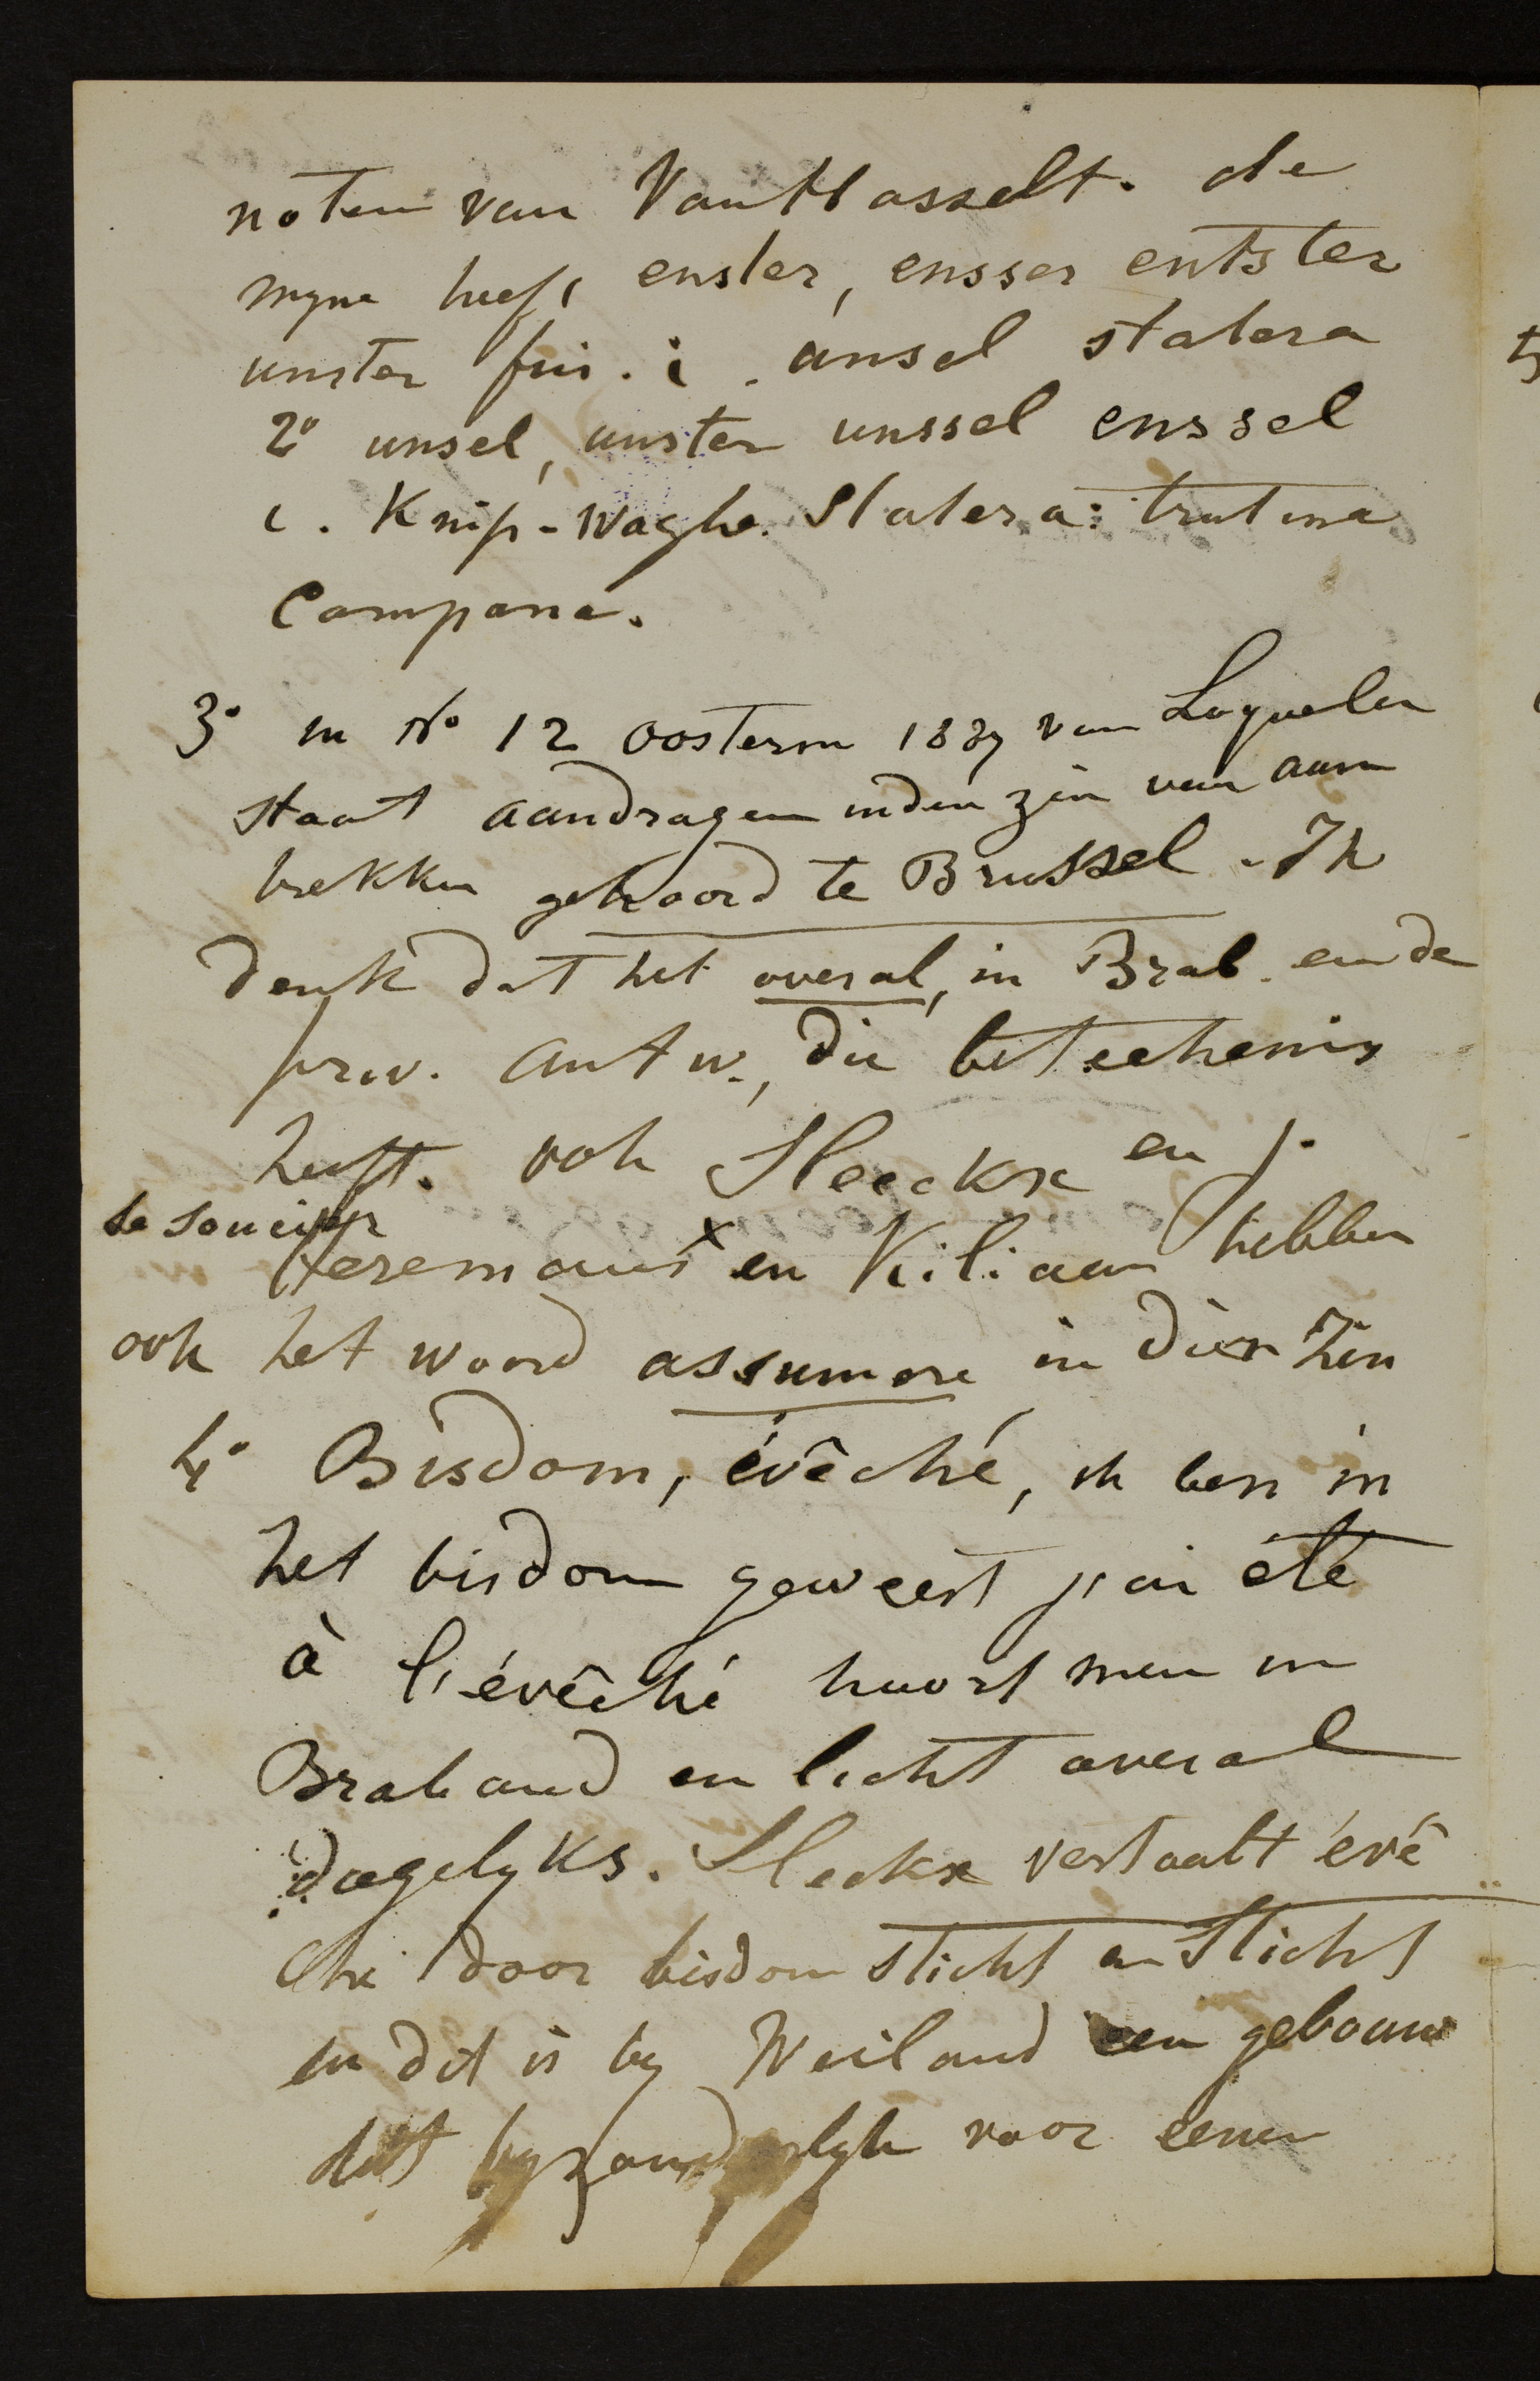 noten van VanHasselt. de
myne heeft enster, ensser entster
unster fris. i. ansel statera
2° unsel, unster unssel enssel
i. Knip-waghe. Statera: trutina
Campana.
3° in N° 12 oosterm 188 van Loquelen
staat aandragen inden zin van aan
trekken gehoord te Brussel. Ik
denk dat het overal, in Brab. en de
prov. Antw., die beteekenis
heeft. ook Sleeckx en
Heremans x en Kiliaan hebben
ook het woord assumere in dien zin
4° Bisdom, évêché, ik ben in
het bisdom geweest j'ai été
à l'évêché hoort men in
Braband en licht overal
dagelyks. Sleckx vertaalt évê
ché door bisdom sticht en Sticht
en dit is by Weiland een gebouw
dat byzonderlyk voor eenen